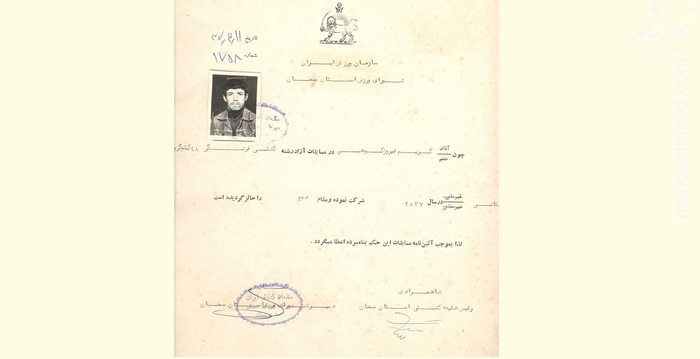 تاریخ
شماره ۱۷۵۸
سازمان ورزش ایران
شورای ورزش استان سمنان
چون آقای خانم کریم فیروزکوهی در مسابقات آزاد رشته کشتی فرنگی ۴۸ کیلوگرم
شهرستانی در سال ۲۰۳۷ شرکت نموده و مقام دوم را حائز گردیده است
لذا بموجب آئین نامه مسابقات این حکم بنامبرده اعطا میگردد .
شاهمرادی
رئیس هیئت کشتی استان سمنان
دبیر شورای ورزش استان سمنان